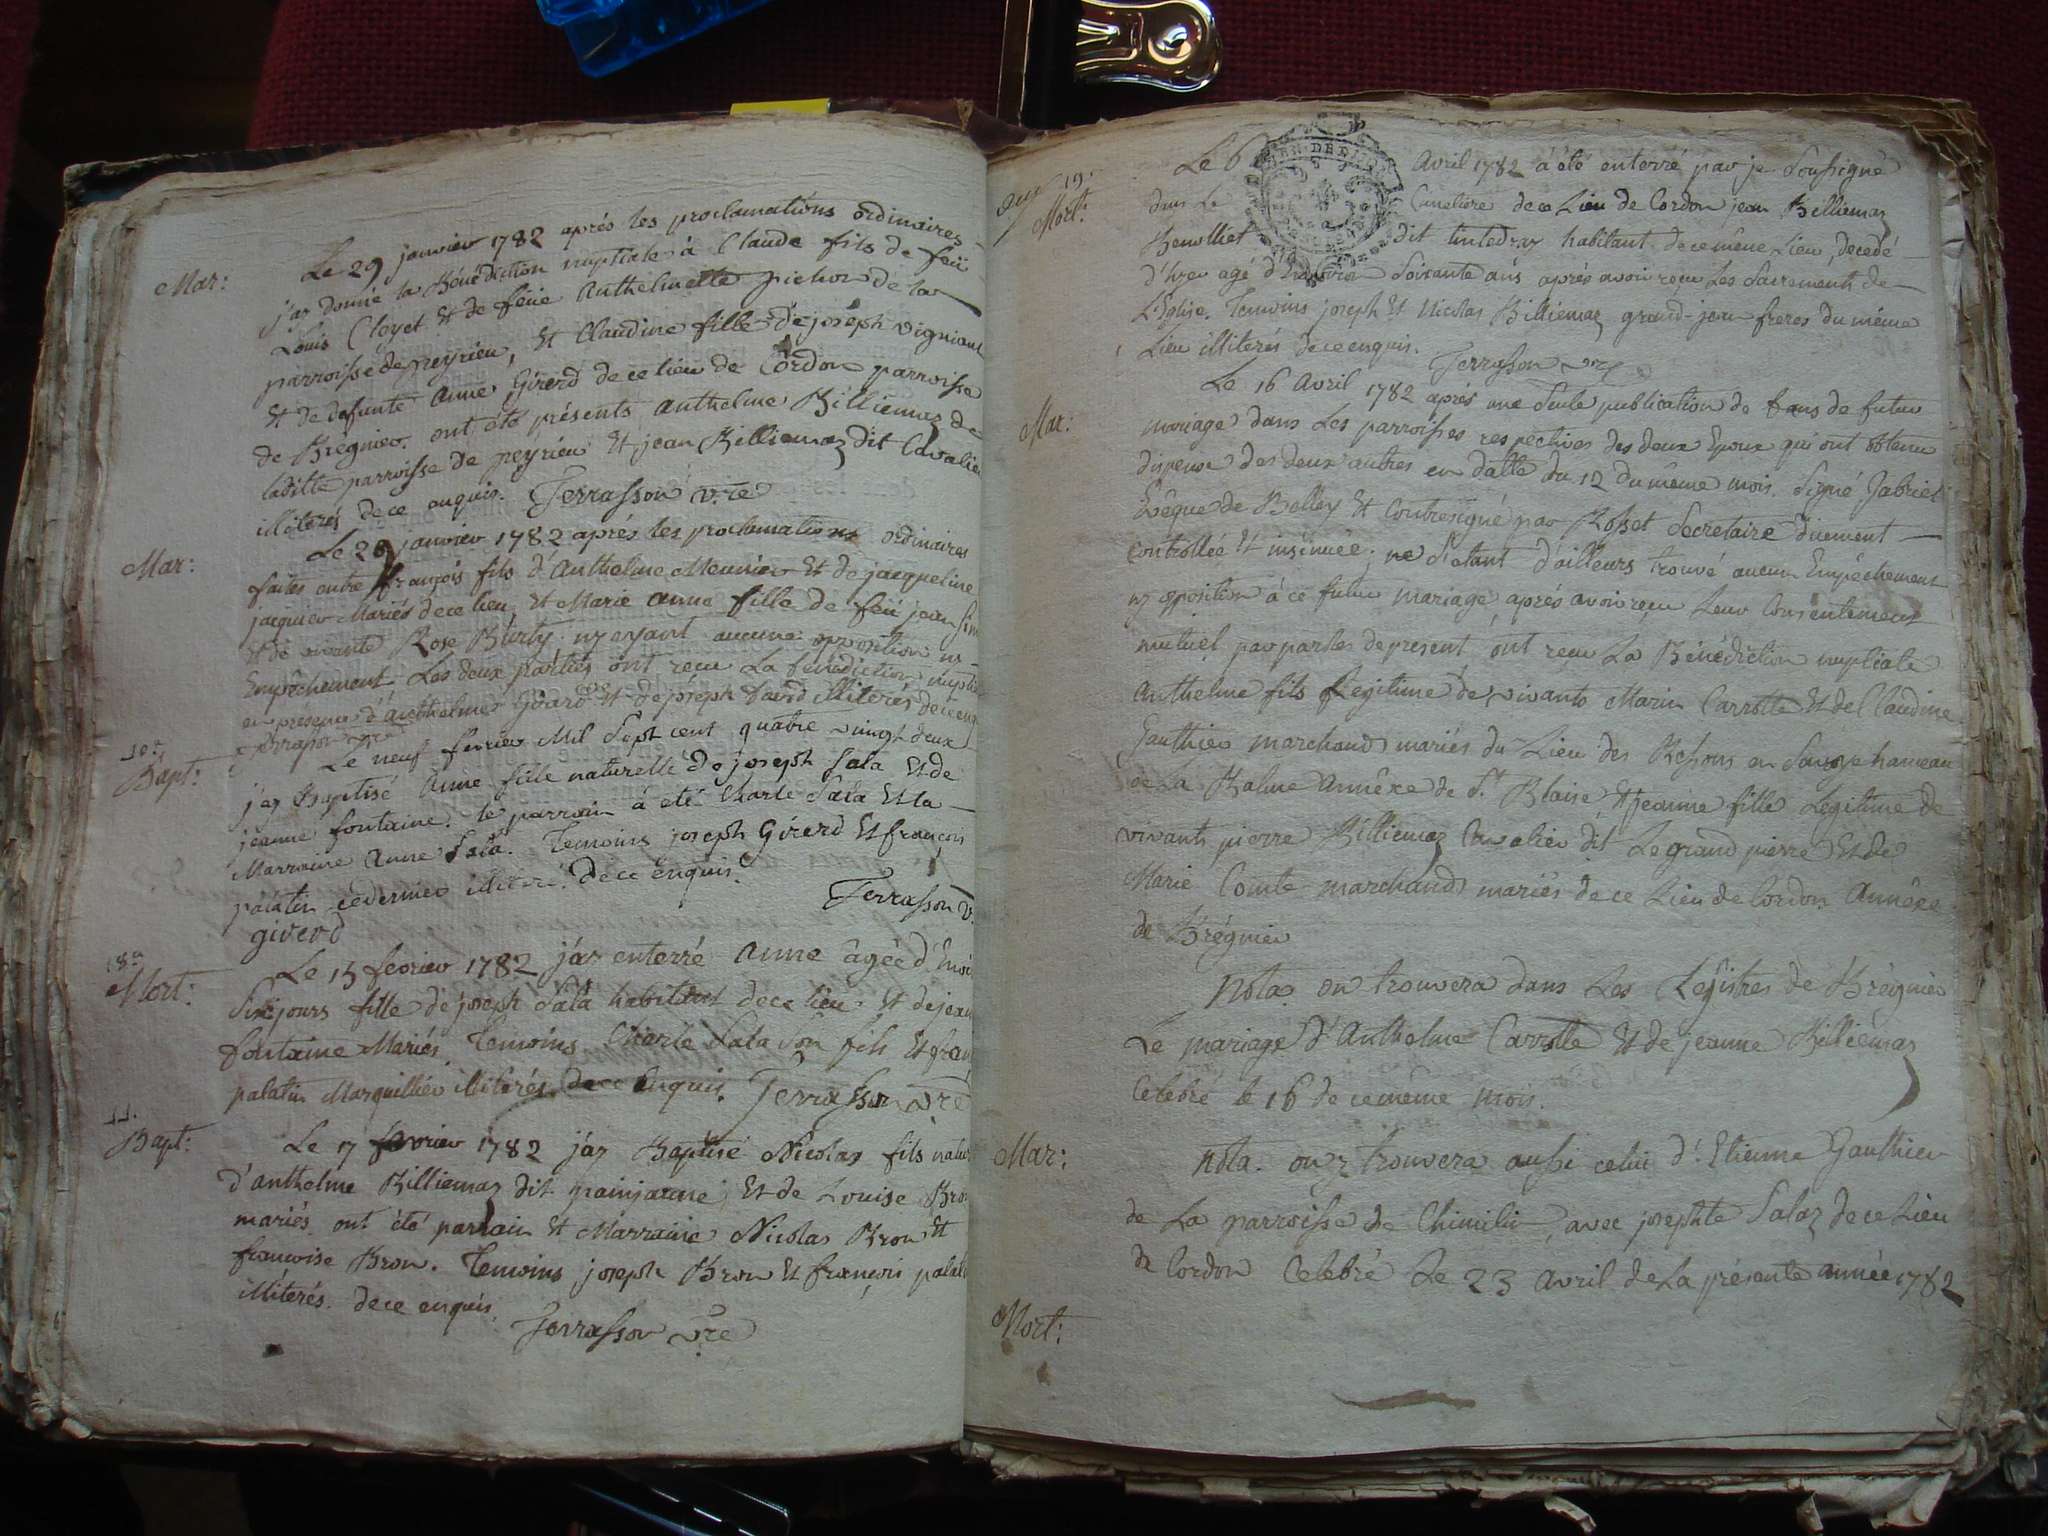 Mar:
Le 29 janvier 1782 aprés les proclamations ordinaires
j'ay donné la Bénédiction nuptiale à Claude fils de feü
Louis Cloyet et de feüe Anthelmette pichon de la
parroisse de peyrieu, et Claudine fille de joseph vignian
et de defunte Anne Girerd de ce lieu de Cordon parroisse
de Brégnier. ont été présents Anthelme Billiemaz de
laditte parroisse de peyrieu et jean Billiemaz dit Cavalier
illiterés de ce enquis. Terrasson v.re
Mar:
Le 29 janvier 1782 aprés les proclamations ordinaires
faites entre françois fils d'Anthelme Meunier et de jacqueline
jacquier Mariés de ce lieu, et Marie Anne fille de feü jean
et de vivante Rose Burty. ny ayant aucune opposition ny
Empêchement Les deux parties ont reçu La bénédiction nuptia
en présence d'Anthelme Girard et de joseph illiterés de ce enq
Terrasson vre
10.e
Bapt:
Le neuf fevrier Mil Sept cent quatre vingt deux
j'ay Baptisé Anne fille naturelle de joseph Sala et de
jeanne fontaine. le parrain à été Charle Sala et la
Marraine Anne Sala. Temoins joseph Girerd et françois
palatin ce dernier illiteré. de ce enquis.
Terrasson v.
giverd
18.e
Mort:
Le 15 fevrier 1782 j'ay enterré Anne âgée d'Envi
Six jours fille de joseph Sala habitant de ce lieu et de jean
fontaine Mariés. Temoins Charle Sala Son fils et fran
palatin Marguillier illiterés de ce enquis. Terrasson vre
11.
Bapt:
Le 17 fevrier 1782 j'ay Baptisé Nicolas fils natur
d'anthelme Billiemaz dit grainjanne, et de Louise Bron
mariés. ont été parrain et Marraine Nicolas Bron et
francoise Bron. Temoins joseph Bron et françois palat
illiterés. de ce enquis.
Terrasson vre
19.
Mort:
Le 6 Avril 1782 à été enterré par je Soussigné
dans Le Cimetiere de ce Lieu de Cordon jean Billiemaz
Benolliet dit tintedray habitant de ce même Lieu, decedé
d'hyer agé d'Environ Soixante ans aprés avoir reçu Les Sacrements de
L'Eglise. Temoins joseph et Nicolas Billiemaz grand-jean freres du même
Lieu illiterés de ce enquis. Terrasson vre
Mar:
Le 16 Avril 1782 aprés une Seule publication de bans de futur
mariage dans Les parroisses respectives des deux Epoux qui ont obtenu
dispense des deux autres en datte du 12 du même mois. Signé Gabriel
Evêque de Belley et Contresigné par Rosset Secretaire duement
Controllée et insinuée; ne S'étant d'ailleurs trouvé aucun Empêchement
ny opposition à ce futur mariage, aprés avoir reçu Leur Consentement
mutuel par paroles de present ont reçu La Bénédiction nuptiale
Anthelme fils Legitime de vivants Marin Carrotte et de Claudine
Gauthier marchands mariés du Lieu des en Savoye hameau
de La Balme Annêxe de S.t Blaise et jeanne fille Legitime de
vivants pierre Billiemaz Cavalier dit Le grand pierre et de
Marie Comte marchands mariés de ce Lieu de Cordon Annêxe
de Brégnier
Nota on trouvera dans Les Régistres de Brégnier
Le mariage d'Anthelme Carrotte et de jeanne Billiemaz
Celebré le 16 de ce même mois.
Mar:
Nota. on y trouvera aussi celui d'Etienne Gauthier
de La parroisse de Chimilin, avec josephte Salaz de ce Lieu
de Cordon Celebré Le 23 Avril de La présente année 1782
Mort: